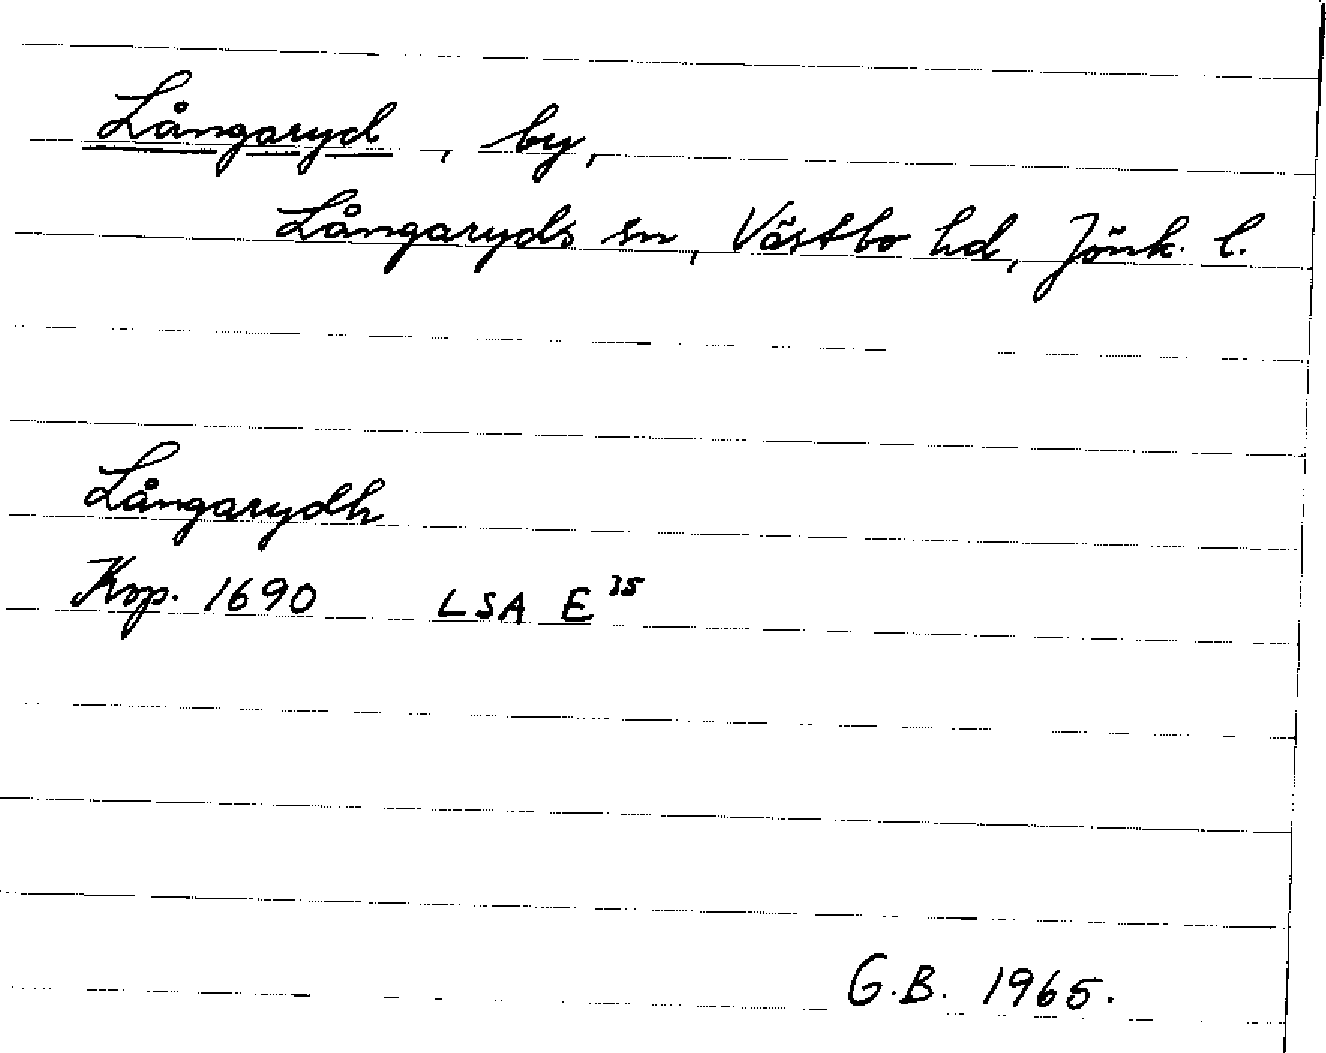 Långaryd, by,
Långaryds sn, Västbo hd, Jönk. l.
Långarydh
Ksp. 1690 LSA E 35
G.B. 1965.